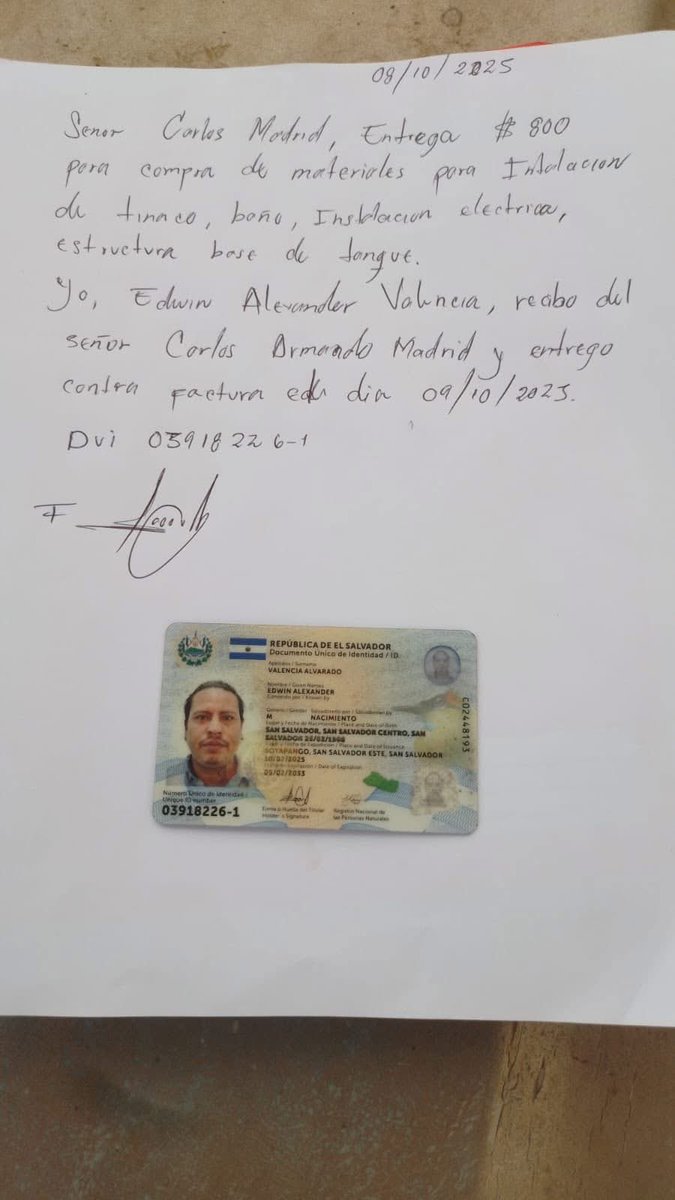 08/10/2025
Senor Carlos Madrid, Entrega $ 800
para compra de materiales para
de tinaco, baño, electrica,
estructura base de tanque.
Yo, Edwin Alexander Valencia, recibo del
señor Carlos Armando Madrid y entrego
contra factura dia 09/10/2025.
Dui 03918226-1
F
REPÚBLICA DE EL SALVADOR
Documento Único de Identidad / ID.
Apellidos / Surname
VALENCIA ALVARADO
Nombre / Given Names
EDWIN ALEXANDER
Conocido por / Known by
Género / Gender Salvadoreño por / Salvadorean by
M NACIMIENTO
Lugar y Fecha de Nacimiento / Place and Date of Birth
SAN SALVADOR, SAN SALVADOR CENTRO, SAN
SALVADOR
/ Place and Date of Issuance
SOYAPANGO, SAN SALVADOR ESTE, SAN SALVADOR
10/02/2025
/ Date of Expiration
05/02/2033
Número Único de Identidad
Unique ID Number
03918226-1
Firma o Huella del Titular
Holder's Signature
Registro Nacional de
las Personas Naturales
C02448193